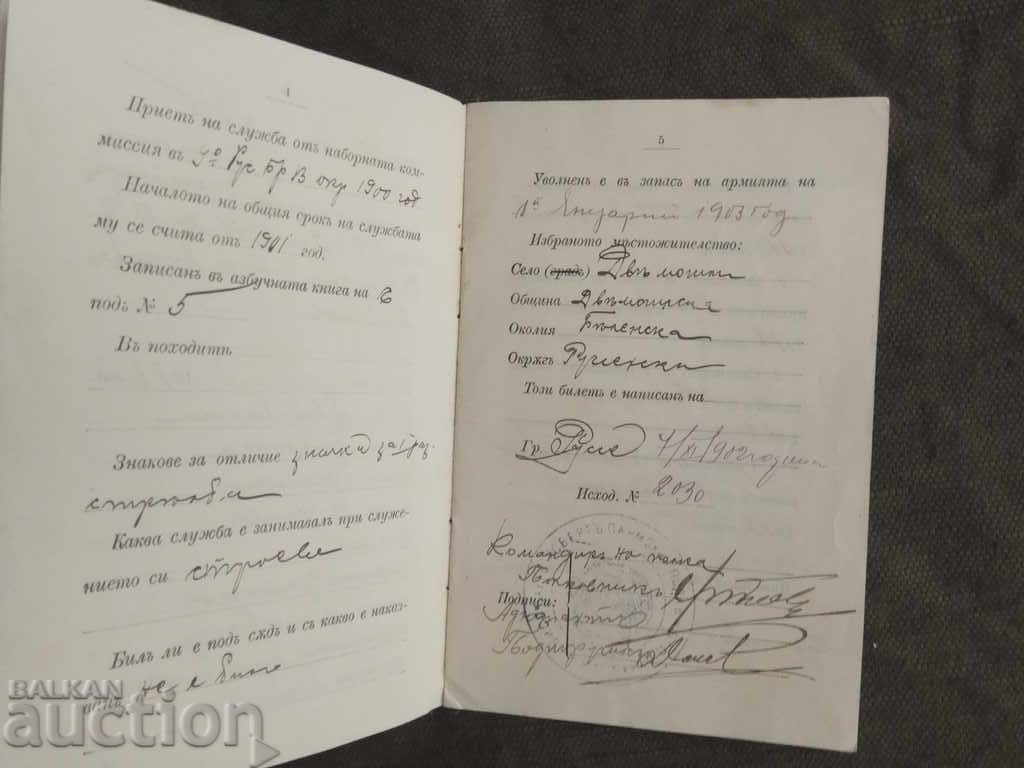 4
Приетъ на служба отъ наборната ком-
миссия въ Рус Бр В окр 1900 год
Началото на общия срокъ на службата
му се счита отъ 1901 год.
Записанъ въ азбучната книга на
подъ № 5
Въ походитѣ
Знакове за отличие значка за
Каква служба е занималъ при служе-
нието си строева
Билъ ли е подъ сѫдъ и съ какво е наказ-
не е билъ
5
Уволненъ е въ запасъ на армията на
1й Януарий 1903 год
Избраното мѣстожителство:
Село (градъ) Двѣ могили
Община Двѣмогилска
Околия Бѣленска
Окрѫгъ Русенски
Този билетъ е написанъ на
Гр. Русе 1902 година
Исход. № 2030
Командиръ на полка
Полковникъ
Подписи:
Адютантъ
Подпоручикъ
BALKAN
auction